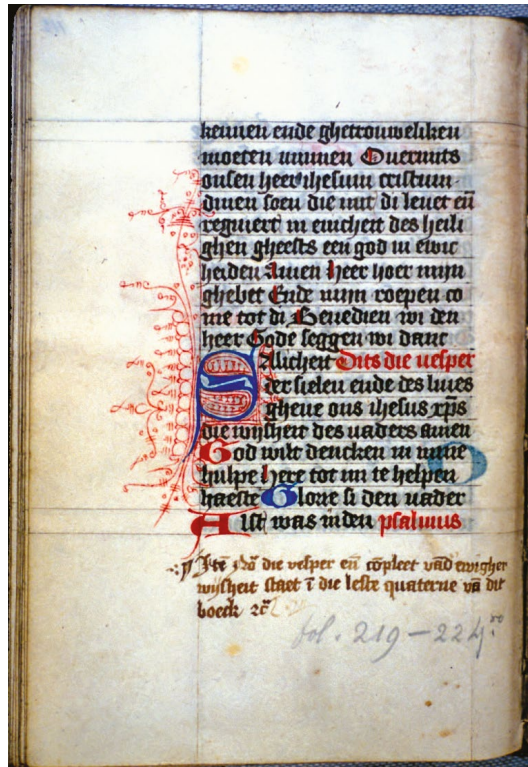 kennen ende ghetrouweliken
moeten minnen Ouermits
onsen heer ihesum cristum
dinen soen die mit di leuet eñ
regniert in enicheit des heili
ghen gheests een god in ewic
heiden Amen Heer hoer mijn
ghebet Ende mijn roepen co
me tot di Benedien wi den
heer Gode seggen wi danc
Salicheit Dits die uesper
der sielen ende des liues
gheue ons ihesus xp̄s
die wijsheit des uaders amen
God wilt dencken in mine
hulpe Here tot mi te helpen
haeste Glorie si den uader
Alst was in den psalmus
Itē die vesper eñ cōpleet vād ewigher
wijsheit staet ī die leste quaterne vā dit
boeck
fol. 219-224 ro